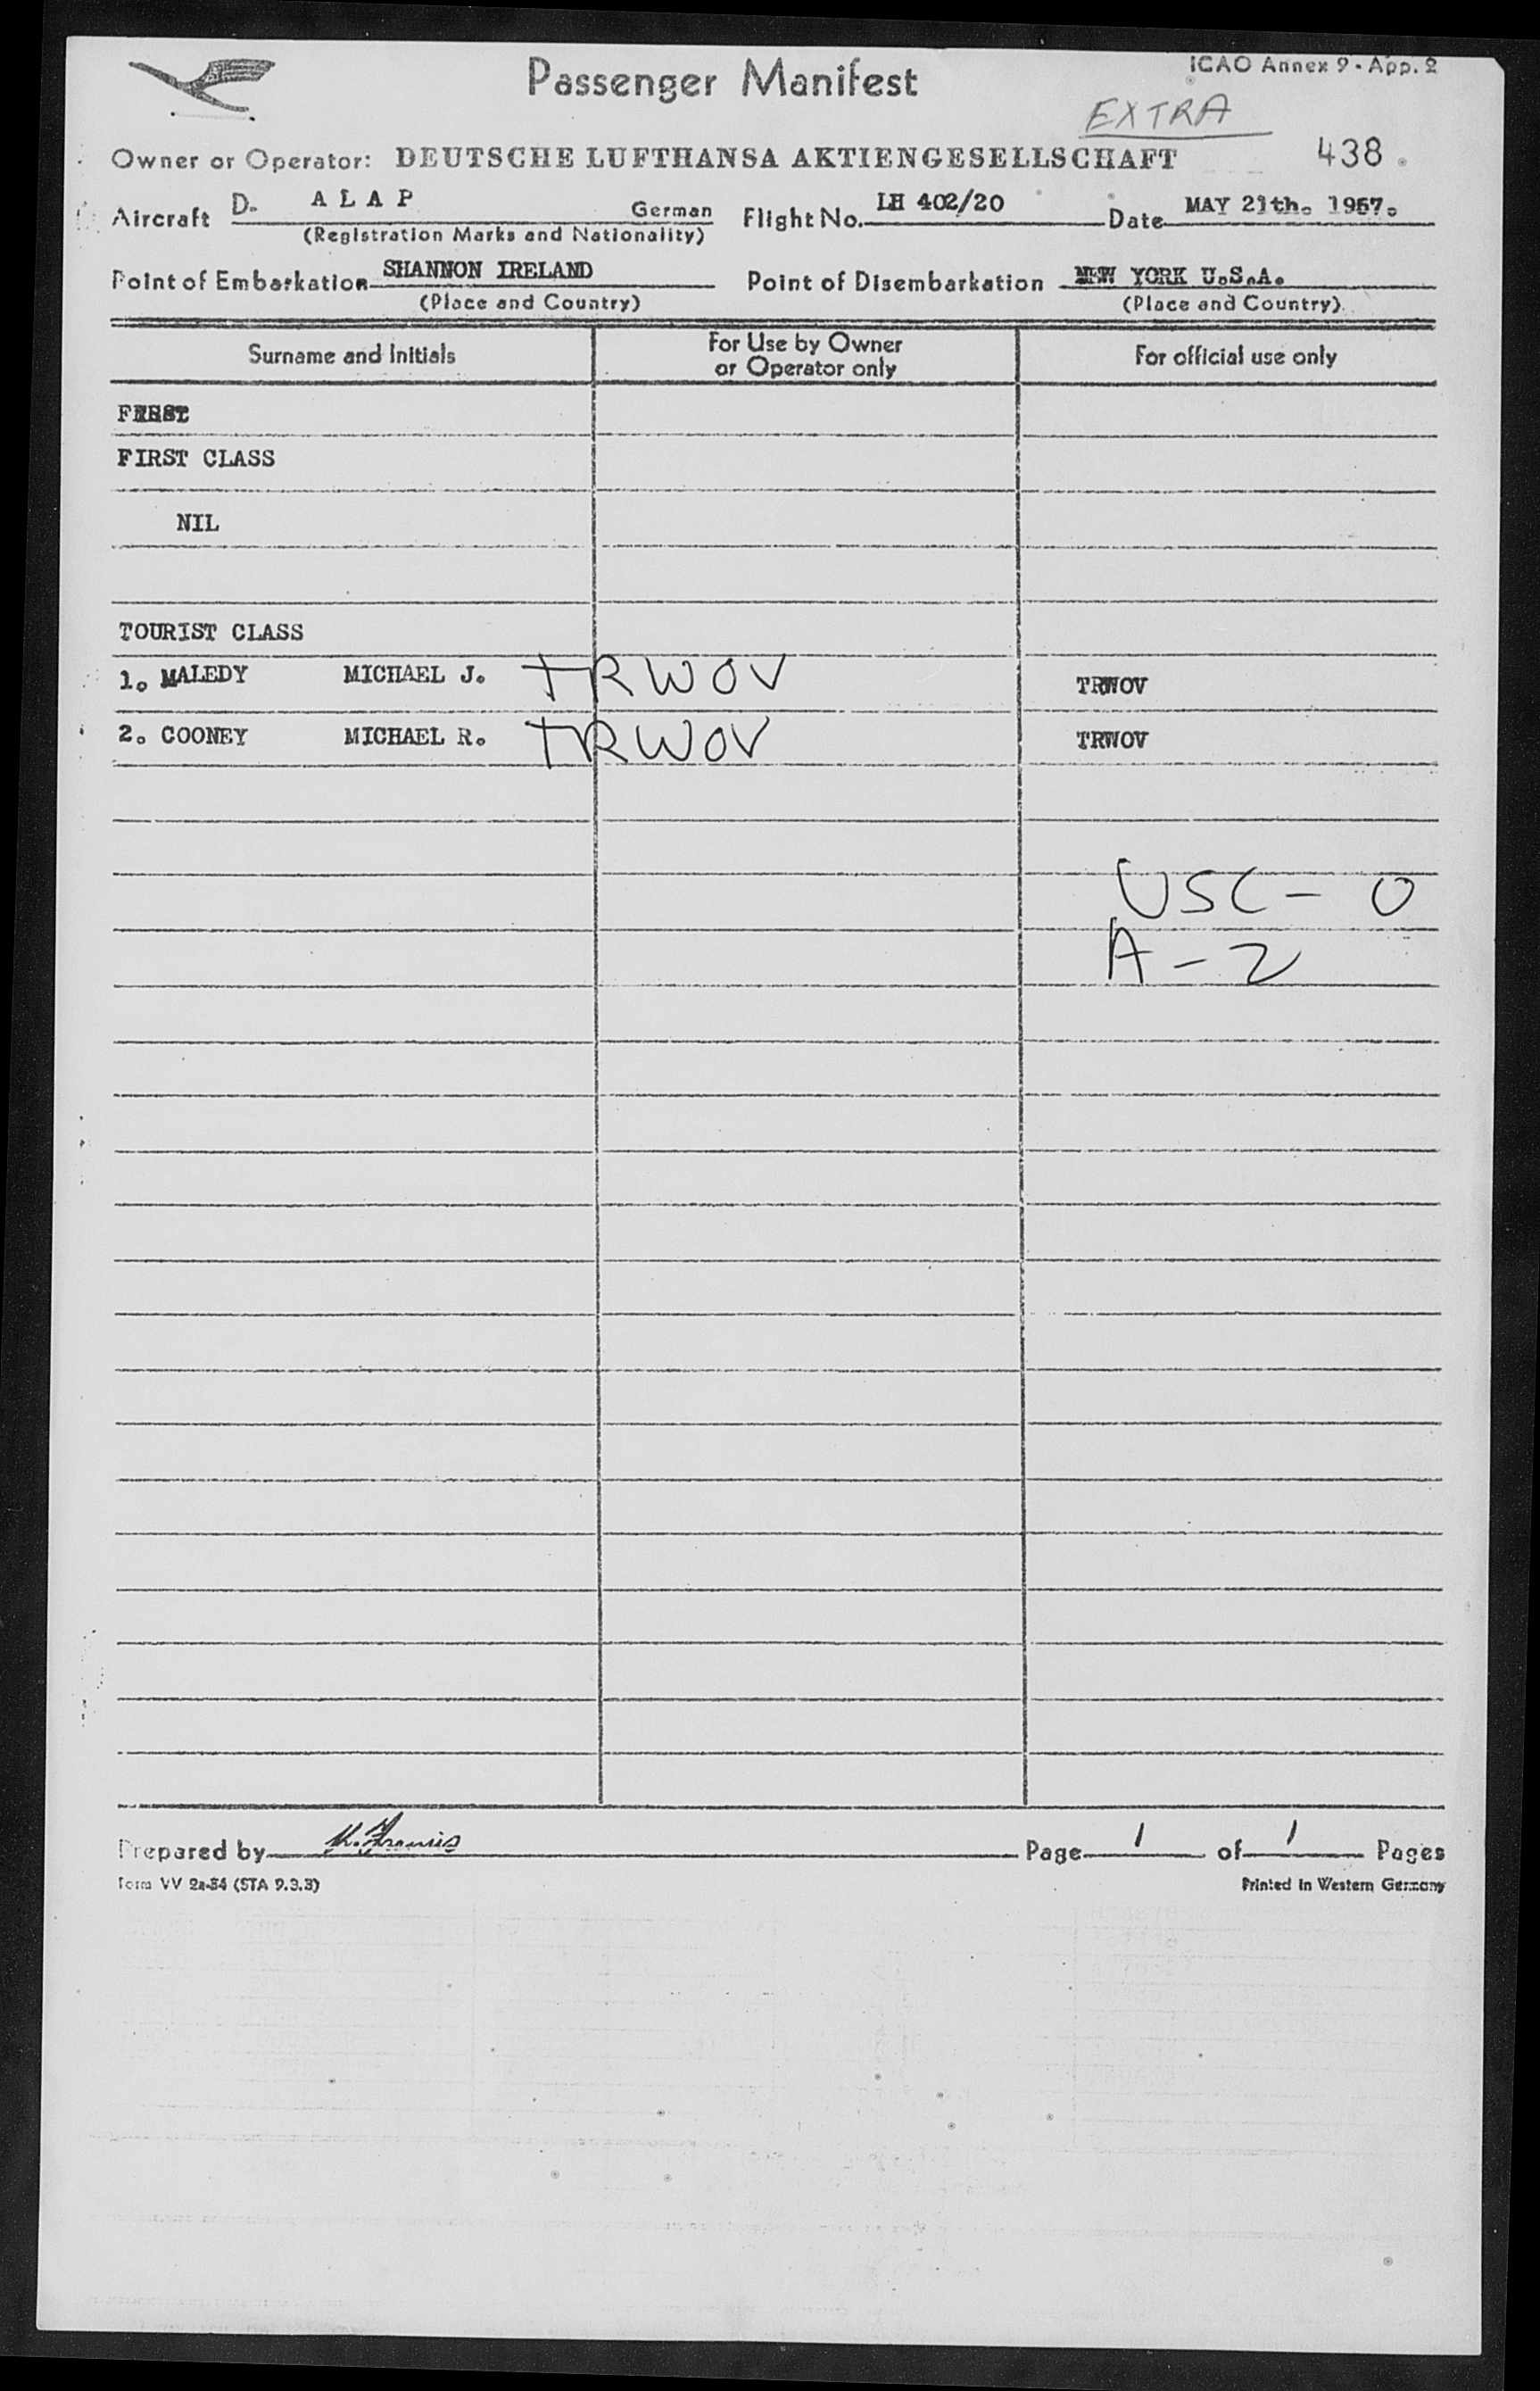 Passenger Manifest
ICAO Annex 9 - App. 2
EXTRA
Owner or Operator: DEUTSCHE LUFTHANSA AKTIENGESELLSCHAFT 438.
Aircraft D. A L A P German Flight No. LH 402/20 Date MAY 21th. 1957.
(Registration Marks and Nationality)
Point of Embarkation SHANNON IRELAND Point of Disembarkation NEW YORK U.S.A.
(Place and Country) (Place and Country)
Surname and Initials For Use by Owner or Operator only For official use only
FIRST CLASS
NIL
TOURIST CLASS
1. MALEDY MICHAEL J. TRWOV TRWOV
2. COONEY MICHAEL R. TRWOV TRWOV
USC - 0
A - 2
Prepared by Page 1 of 1 Pages
Form VV 2a-54 (STA 9.3.3) Printed in Western Germany